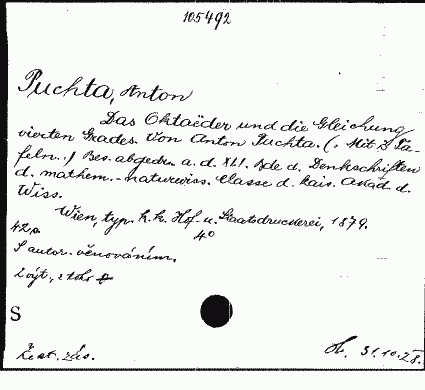 105492
Puchta, Anton
Das Oktaëder und die Gleichung
vierten Grades. Von Anton Puchta. (. Mit 3 Ta-
feln.) Bes. abgedr. a. d. XLI. Bde d. Denkschriften
d. mathem.-naturwiss. Classe d. kais. Akad. d.
Wiss.
Wien, typ. k. k. Hof- u. Staatsdruckerei, 1879.
4°
S autor. věnováním.
2 výt.
S
31.10.28.